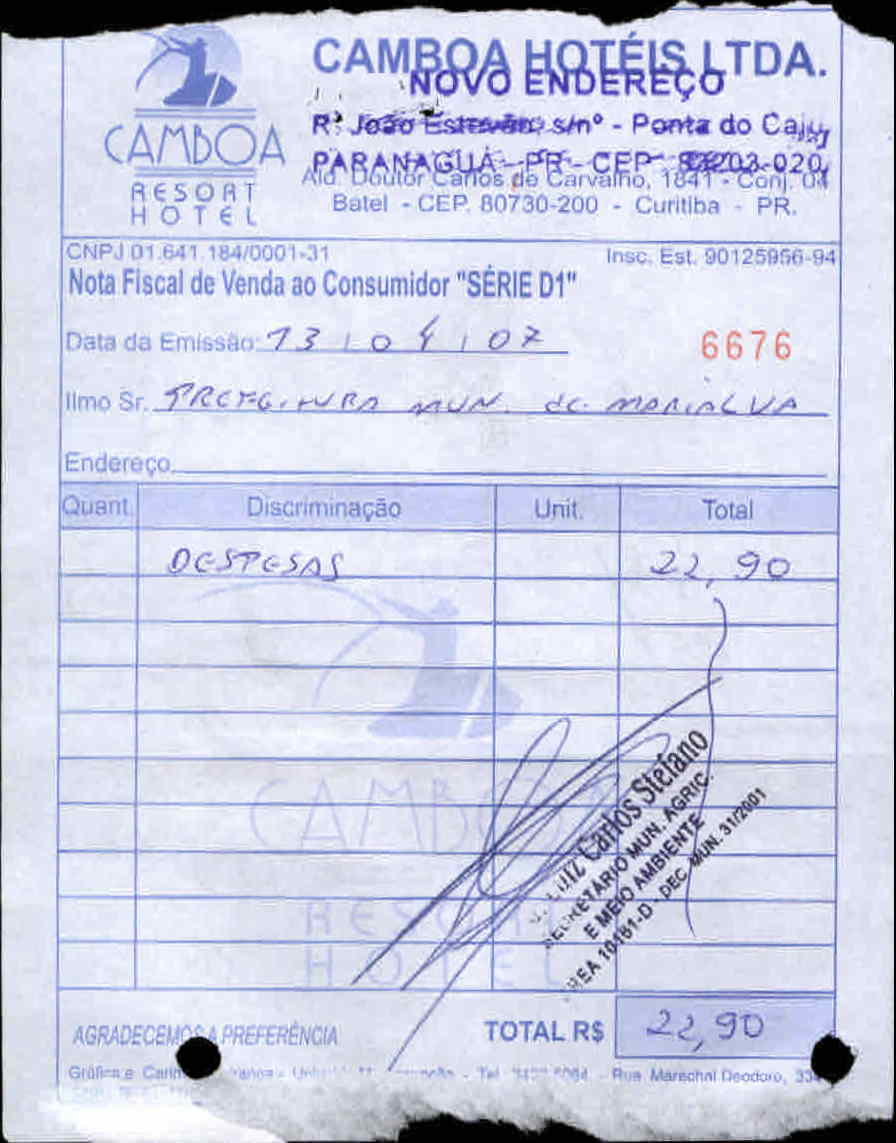 CAMBOA HOTÉIS LTDA.
NOVO ENDEREÇO
R. João Estevão, s/nº - Ponta do Caju
PARANAGUÁ - PR - CEP 83203-020
Ald. Doutor Carlos de Carvalho, 1841 - Conj. 04
Batel - CEP. 80730-200 - Curitiba - PR.
CAMBOA
RESORT
HOTEL
CNPJ 01.641.184/0001-31
Insc. Est. 90125956-94
Nota Fiscal de Venda ao Consumidor "SÉRIE D1"
Data da Emissão: 13 / 04 / 07
6676
Ilmo Sr. PREFEITURA MUN. de MARIALVA
Endereço
Quant. Discriminação Unit. Total
DESPESAS 22,90
CAMBOA
RESORT
HOTEL
Luiz Carlos Stefano
SECRETÁRIO MUN. AGRIC.
E MEIO AMBIENTE
CREA 10181-D - DEC. MUN. 31/2001
AGRADECEMOS A PREFERÊNCIA
TOTAL R$ 22,90
Gráfica e - Tel. - Rua Marechal Deodoro,